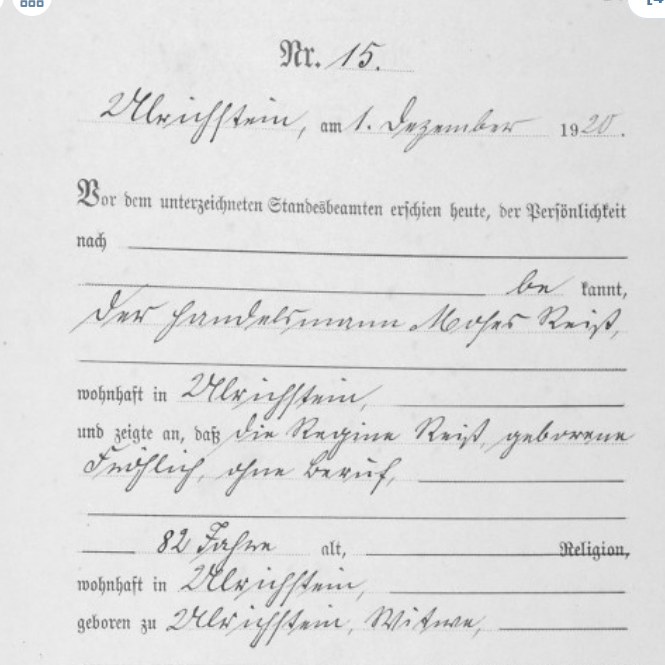 Nr. 15.
Ulrichstein, am 1. Dezember 1920.
Vor dem unterzeichneten Standesbeamten erschien heute, der Persönlichkeit
nach
be kannt,
der Handelsmann Moses Reiß,
wohnhaft in Ulrichstein,
und zeigte an, daß die Regine Reiß, geborene
Fröhlich, ohne Beruf,
82 Jahre alt, Religion,
wohnhaft in Ulrichstein,
geboren zu Ulrichstein, Witwe,